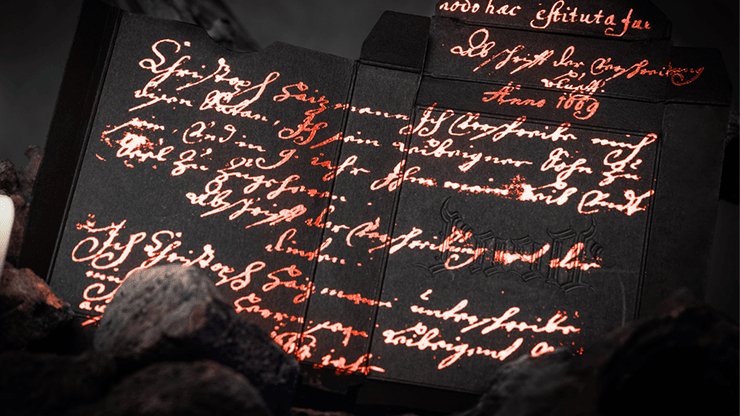 nodo hac estituta fa
Abschrifft der Verschreibung
Anno 1669
Christoph Haizmann Ich Verschreibe mich
disen Satan, Ich sein leibeigner Sohn Zu
sein, Und in 9. iahr ihm mein leib Undt
Seel Zu Zugeheren
Abschrifft der Verschreibung mit der
Ich Christoph Haizmann unterschreibe
mich disen leibeigen
iahr